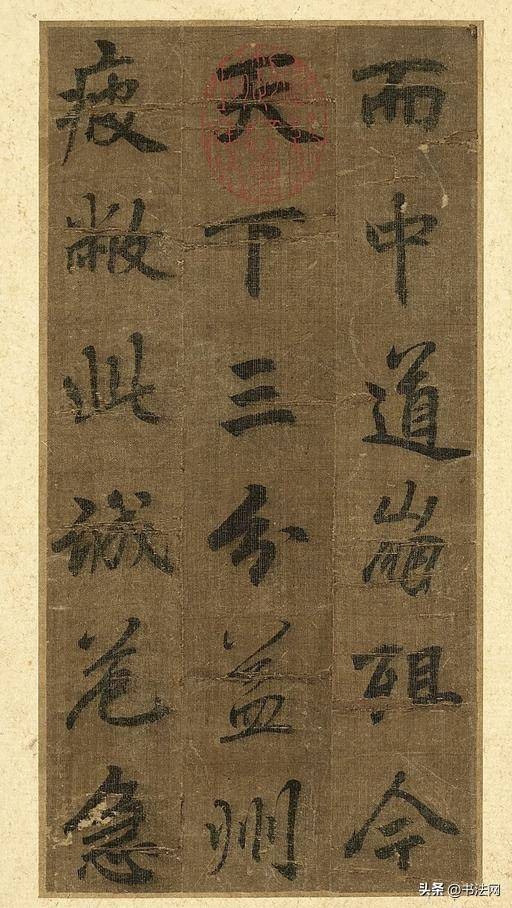 而中道崩殂今
天下三分益州
疲敝此誠危急
头条 @书法网